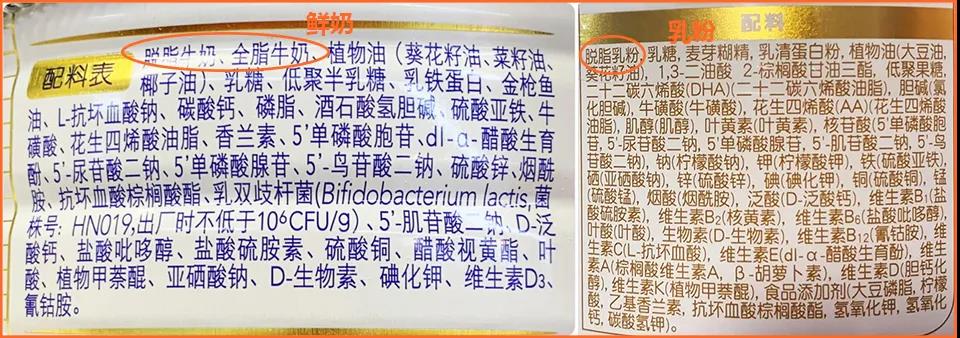 鲜奶
脱脂牛奶、全脂牛奶、植物油（葵花籽油、菜籽油、
配料表
椰子油）、乳糖、低聚半乳糖、乳铁蛋白、金枪鱼
油、L-抗坏血酸钠、碳酸钙、磷脂、酒石酸氢胆碱、硫酸亚铁、牛
磺酸、花生四烯酸油脂、香兰素、5'单磷酸胞苷、dl-α-醋酸生育
酚、5'-尿苷酸二钠、5'单磷酸腺苷、5'-鸟苷酸二钠、硫酸锌、烟酰
胺、抗坏血酸棕榈酸酯、乳双歧杆菌(Bifidobacterium lactis,菌
株号: HN019,出厂时不低于10⁶CFU/g)、5'-肌苷酸二钠、D-泛
酸钙、盐酸吡哆醇、盐酸硫胺素、硫酸铜、醋酸视黄酯、叶
酸、植物甲萘醌、亚硒酸钠、D-生物素、碘化钾、维生素D₃、
氰钴胺。
乳粉
配料
脱脂乳粉, 乳糖, 麦芽糊精, 乳清蛋白粉, 植物油(大豆油,
葵花籽油), 1,3-二油酸 2-棕榈酸甘油三酯, 低聚果糖,
二十二碳六烯酸(DHA)(二十二碳六烯酸油脂), 胆碱(氯
化胆碱), 牛磺酸(牛磺酸), 花生四烯酸(AA)(花生四烯酸
油脂), 肌醇(肌醇), 叶黄素(叶黄素), 核苷酸(5'单磷酸胞
苷, 5'-尿苷酸二钠, 5'单磷酸腺苷, 5'-肌苷酸二钠, 5'-鸟
苷酸二钠), 钠(柠檬酸钠), 钾(柠檬酸钾), 铁(硫酸亚铁),
硒(亚硒酸钠), 锌(硫酸锌), 碘(碘化钾), 铜(硫酸铜), 锰
(硫酸锰), 烟酸(烟酰胺), 泛酸(D-泛酸钙), 维生素B₁(盐
酸硫胺素), 维生素B₂(核黄素), 维生素B₆(盐酸吡哆醇),
叶酸(叶酸), 生物素(D-生物素), 维生素B₁₂(氰钴胺), 维
生素C(L-抗坏血酸), 维生素E(dl-α-醋酸生育酚), 维生
素A(棕榈酸维生素A, β-胡萝卜素), 维生素D(胆钙化
醇), 维生素K(植物甲萘醌), 食品添加剂(大豆磷脂, 柠檬
酸, 乙基香兰素, 抗坏血酸棕榈酸酯, 氢氧化钾, 氢氧化
钙, 碳酸氢钾)。